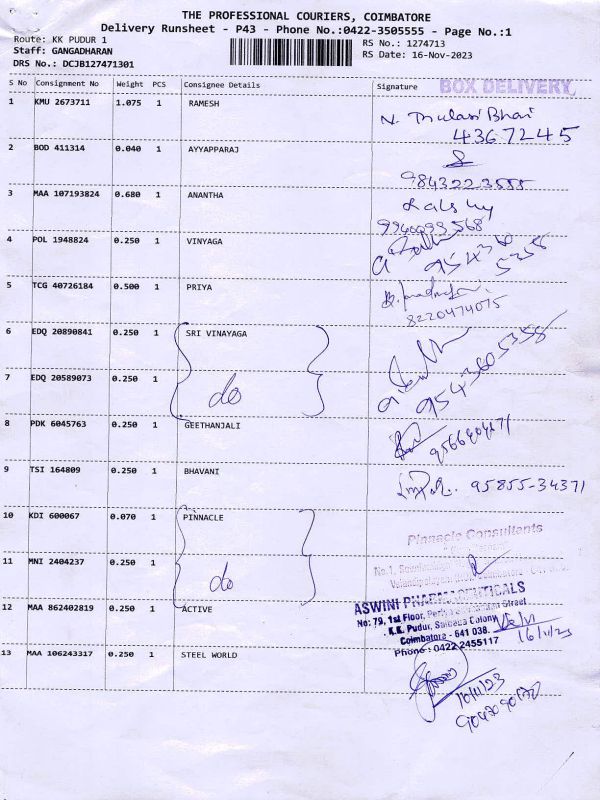 THE PROFESSIONAL COURIERS, COIMBATORE
Delivery Runsheet - P43 - Phone No.:0422-3505555 - Page No.:1
Route: KK PUDUR 1
Staff: GANGADHARAN
DRS No.: DCJB127471301
RS No.: 1274713
RS Date: 16-Nov-2023
S No Consignment No Weight PCS Consignee Details Signature
BOX DELIVERY
1 KMU 2673711 1.075 1 RAMESH
N. Thulasi Bhai
4367245
2 BOD 411314 0.040 1 AYYAPPARAJ
9843223555
3 MAA 107193824 0.680 1 ANANTHA
4 POL 1948824 0.250 1 VINYAGA
5 TCG 40726184 0.500 1 PRIYA
8220474075
6 EDQ 20890841 0.250 1 SRI VINAYAGA
7 EDQ 20589073 0.250 1 do
9543605358
8 PDK 6045763 0.250 1 GEETHANJALI
9 TSI 164809 0.250 1 BHAVANI
95855-34371
10 KDI 600067 0.070 1 PINNACLE
Pinnacle Consultants
11 MNI 2404237 0.250 1 do
12 MAA 862402819 0.250 1 ACTIVE
ASWINI PHARMACEUTICALS
No: 79, 1st Floor, Street
K.K. Pudur, Saibaba Colony
Coimbatore - 641 038.
Phone : 0422 2455117
16/11/23
13 MAA 106243317 0.250 1 STEEL WORLD
16/11/23